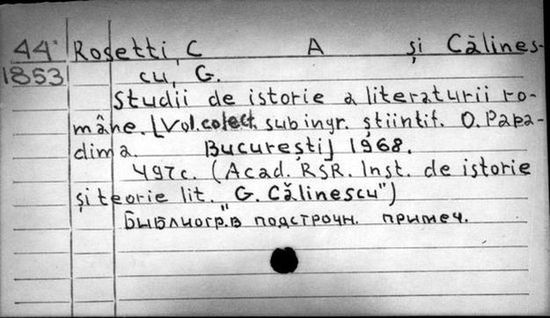 44* Rosetti, C A și Călines-
1853 cu, G.
Studii de istorie a literaturii ro-
mâne. [Vol. colect. sub ingr. științif. O. Papa-
dima. București] 1968.
497 c. (Acad. RSR. Inst. de istorie
și teorie lit. "G. Călinescu")
Библиогр. в подстрочн. примеч.